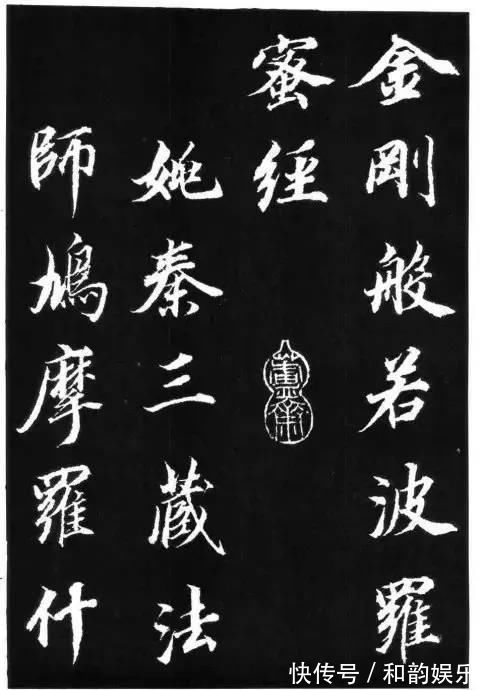 金剛般若波羅
蜜經
姚秦三藏法
師鳩摩羅什
快传号/和韵娱乐